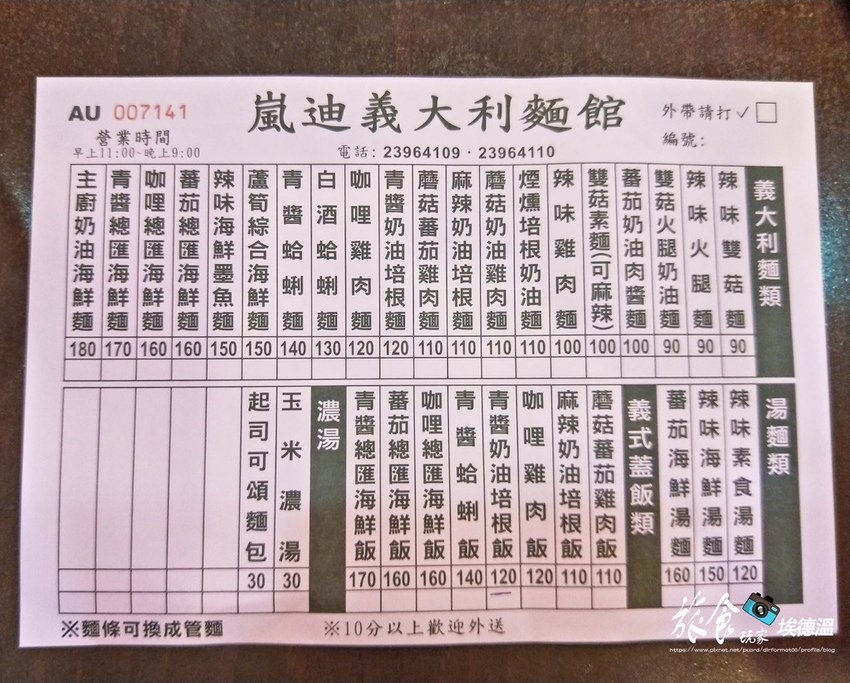 AU 007141
嵐迪義大利麵館
外帶請打✓□
營業時間
早上11:00-晚上9:00
電話: 23964109 · 23964110
編號:
義大利麵類
辣味雙菇麵 90
辣味火腿麵 90
雙菇火腿奶油麵 90
蕃茄奶油肉醬麵 100
雙菇素麵(可麻辣) 100
辣味雞肉麵 100
煙燻培根奶油麵 110
蘑菇奶油雞肉麵 110
麻辣奶油培根麵 110
蘑菇蕃茄雞肉麵 110
青醬奶油培根麵 120
咖哩雞肉麵 120
白酒蛤蜊麵 130
青醬蛤蜊麵 140
蘆筍綜合海鮮麵 150
辣味海鮮墨魚麵 150
蕃茄總匯海鮮麵 160
咖哩總匯海鮮麵 160
青醬總匯海鮮麵 170
主廚奶油海鮮麵 180
湯麵類
辣味素食湯麵 120
辣味海鮮湯麵 150
蕃茄海鮮湯麵 160
義式蓋飯類
蘑菇蕃茄雞肉飯 110
麻辣奶油培根飯 110
咖哩雞肉飯 120
青醬奶油培根飯 120
青醬蛤蜊飯 140
咖哩總匯海鮮飯 160
蕃茄總匯海鮮飯 160
青醬總匯海鮮飯 170
濃湯
玉米濃湯 30
起司可頌麵包 30
※麵條可換成管麵
※10分以上歡迎外送
旅食玩家 埃德溫
https://www.pixnet.net/pcard/dirformat00/profile/blog